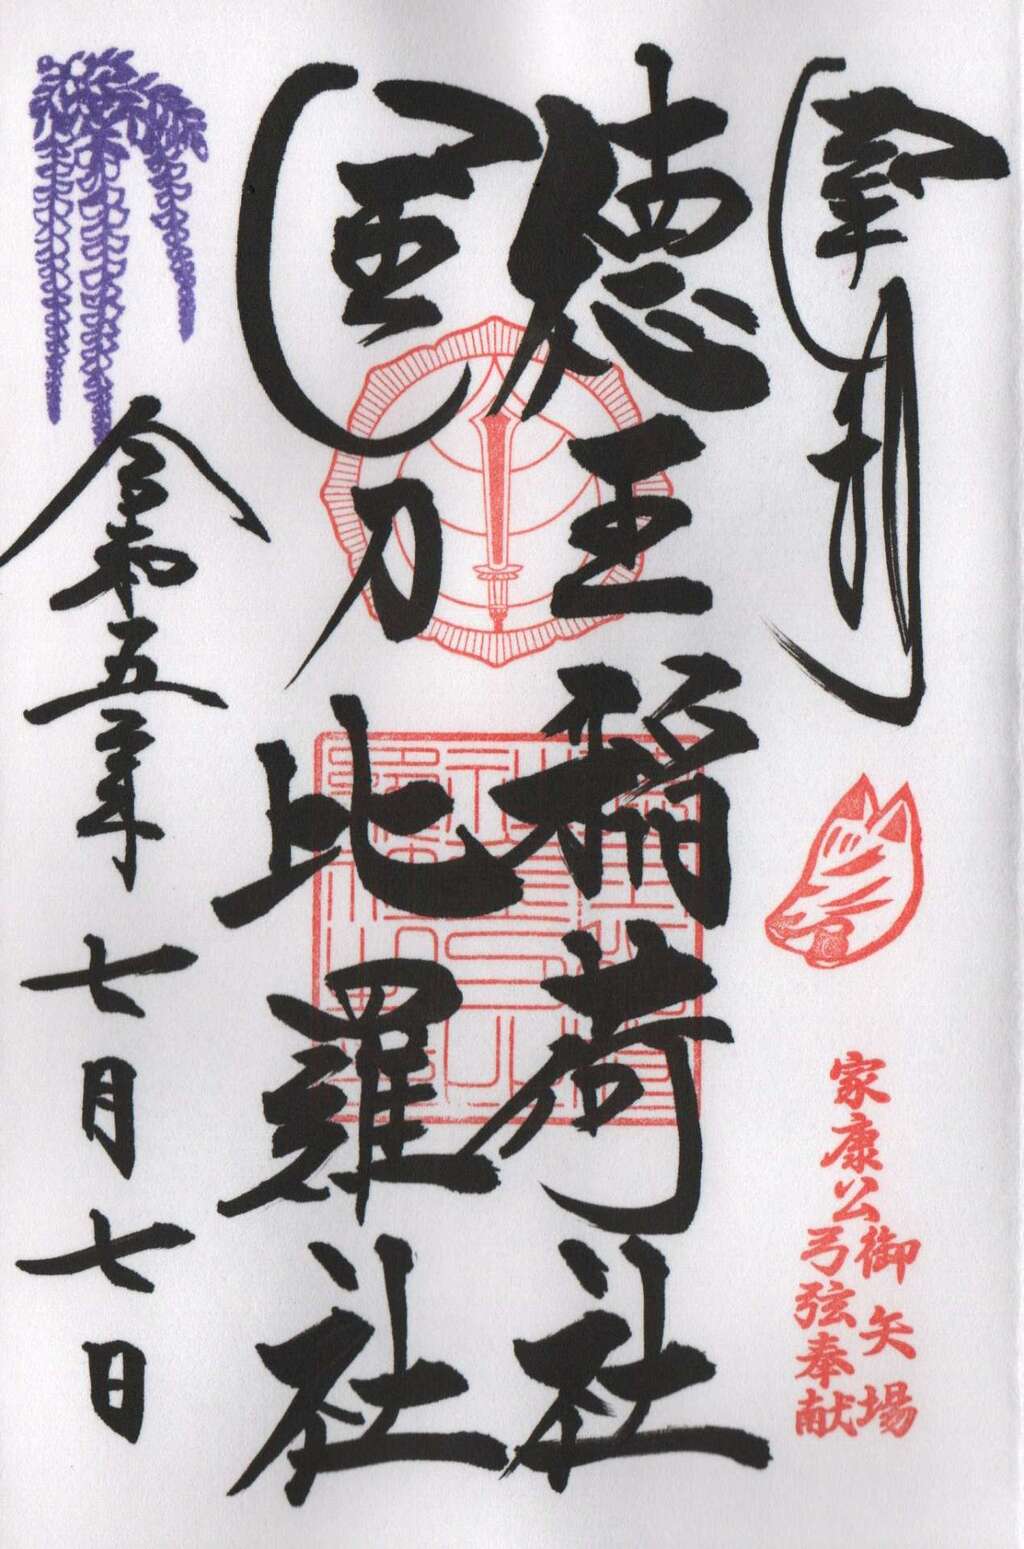 奉拝
家康公
御矢場
弓弦奉献
徳王稲荷社
金刀比羅社
令和五年七月七日